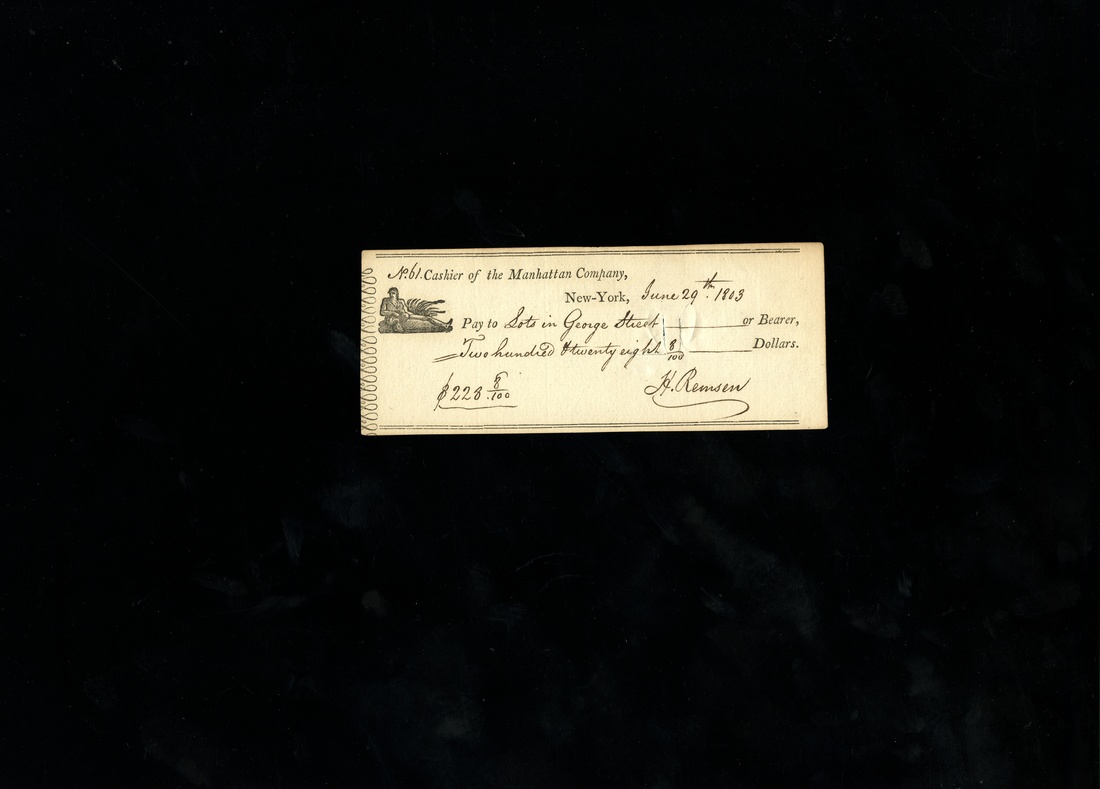 No. 61. Cashier of the Manhattan Company,
New-York, June 29th. 1803
Pay to Lots in George Street or Bearer,
Two hundred & twenty eight 8/100 Dollars.
$228 8/100 H. Remsen